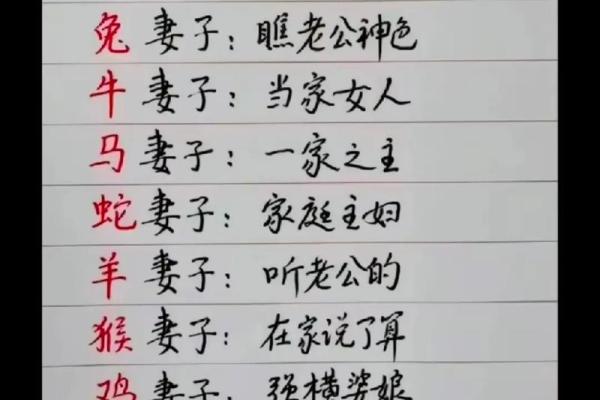 兔妻子：瞧老公神色
牛妻子：当家女人
马妻子：一家之主
蛇妻子：家庭主妇
羊妻子：听老公的
猴妻子：在家说了算
鸡妻子：强横婆娘